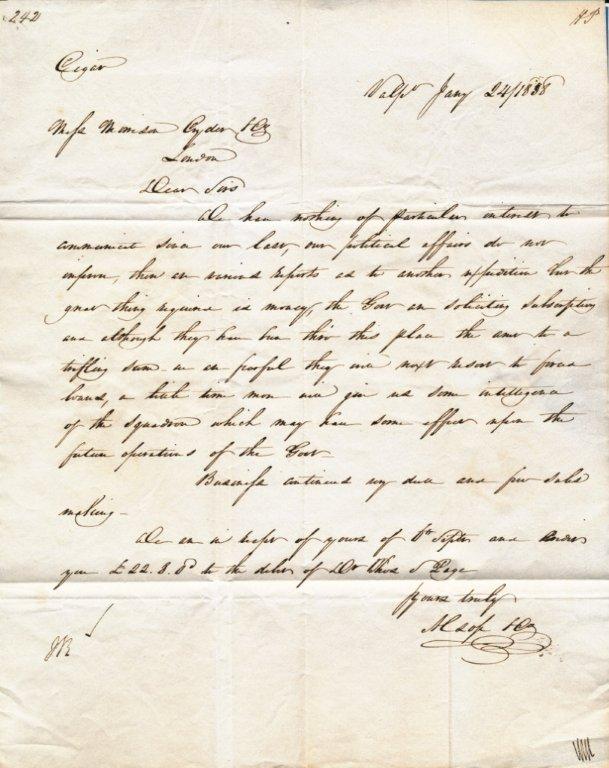 242
Cigar
Valpo Jany 24/1838
Mess Morrison Cryder & Co
London
Dear Sirs
We have nothing of particular interest to
communicate since our last, our political affairs do not
improve, there are various reports as to another expedition but the
great thing required is money, the Govt are soliciting subscriptions
and although they have been thro this place the amt to a
trifling sum we are fearful they will next resort to forced
loans, a little time more will give us some intelligence
of the squadron which may have some effect upon the
future operations of the Govt
Business continues very dull and few sales
making -
We are in rcept of yours of 6th Septr and
you £22.8.0d to the debit of Dr Thos Page
Yours truly
Alsop & Co